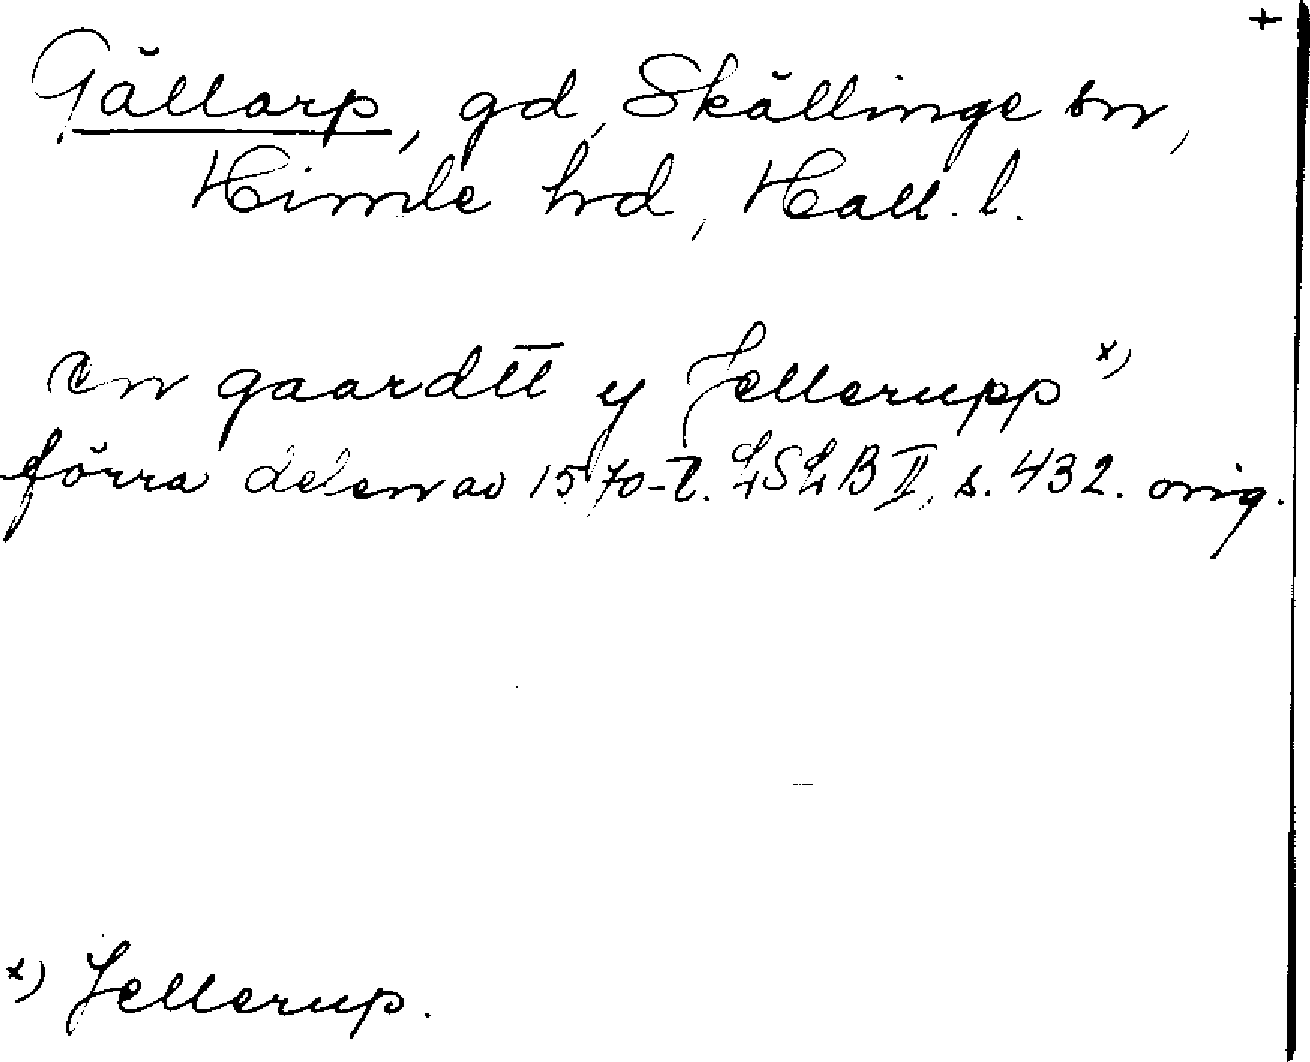 +
Gällarp, gd, Skällinge sn,
Himle hrd, Hall. l.
en gaardtt y Jellerupp x)
förra delen av 1570-t. LSLB II, s. 432. orig.
x) Jellerup.